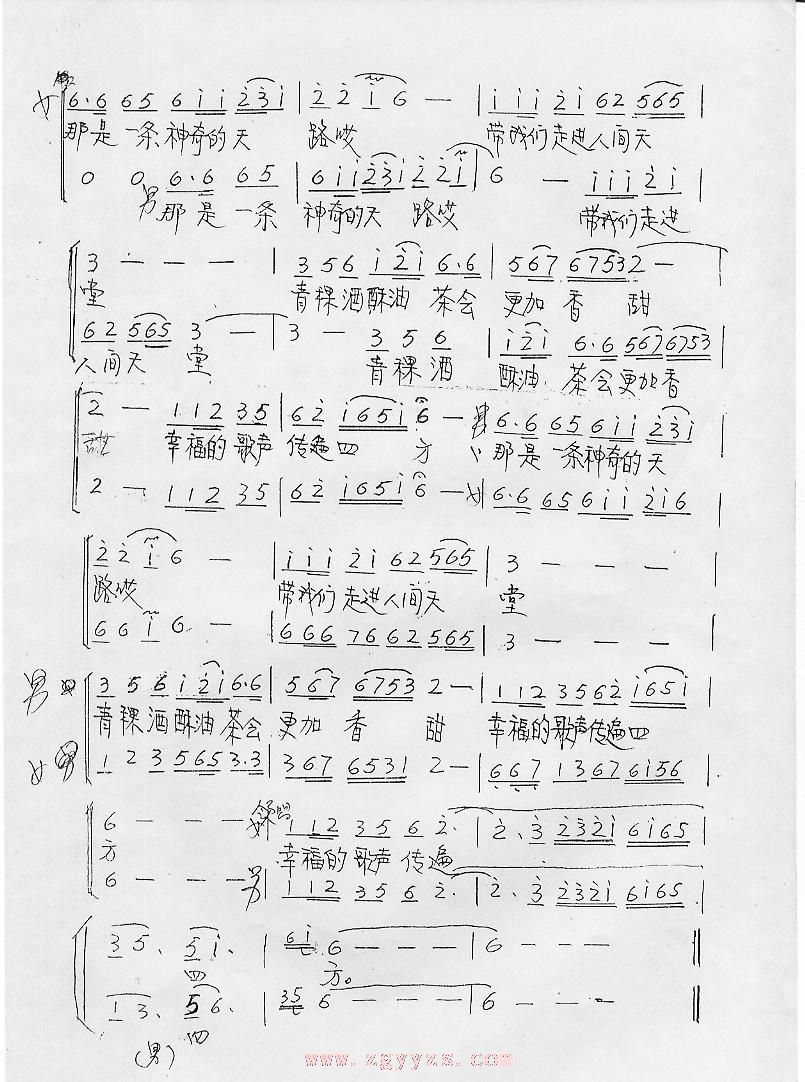 女 6·6 65 6i i 2̇3̇i | 2̇ 2̇ i 6 — | i i i 2̇ i 62 565 |
那是一条神奇的天 路哎 带我们走进人间天
0 0 6·6 65 | 6i i 2̇3̇i 2̇ 2̇ i | 6 — i i i 2̇ i |
男 那是一条 神奇的天 路哎 带我们走进
3 — — — | 3 5 6 i 2̇ i 6·6 | 567 6753 2 —
堂 青稞酒酥油 茶会 更加香 甜
62 565 3 — | 3 — 3 5 6 | i 2̇ i 6·6 567 6753
人间天 堂 青稞酒 酥油 茶会更加香
2 — 112 35 | 62̇ i65i 6 — 男 | 6·6 65 6i i 2̇3̇i |
甜 幸福的歌声 传遍四 方 那是一条神奇的天
2 — 112 35 | 62̇ i65i 6 — 女 | 6·6 65 6i i 2̇i6
2̇ 2̇ i 6 — | i i i 2̇ i 62 565 | 3 — — — |
路哎 带我们走进人间天 堂
6 6 i 6 — | 666 76 62 565 | 3 — — — |
男 3 5 6 i 2̇i 6·6 | 567 6753 2 — | 112 35 62̇ i65i |
青稞酒酥油茶会 更加香 甜 幸福的歌声传遍四
女 1 2 3 565 3·3 | 367 6531 2 — | 667 13 67 6i56 |
6 — — — | 112 35 6 2̇· | 2̇· 3̇ 2̇3̇2̇i 6i65 |
方 幸福的歌声 传遍
6 — — — 男 | 112 35 6 2̇· | 2̇· 3̇ 2̇3̇2̇i 6i65 |
3 5、 5 i、 | 6i 6 — — — | 6 — — — ‖
四 方。
1 3、 5 6、 | 35 6 — — — | 6 — — — ‖
四
(男)
www.zgyyzs.com